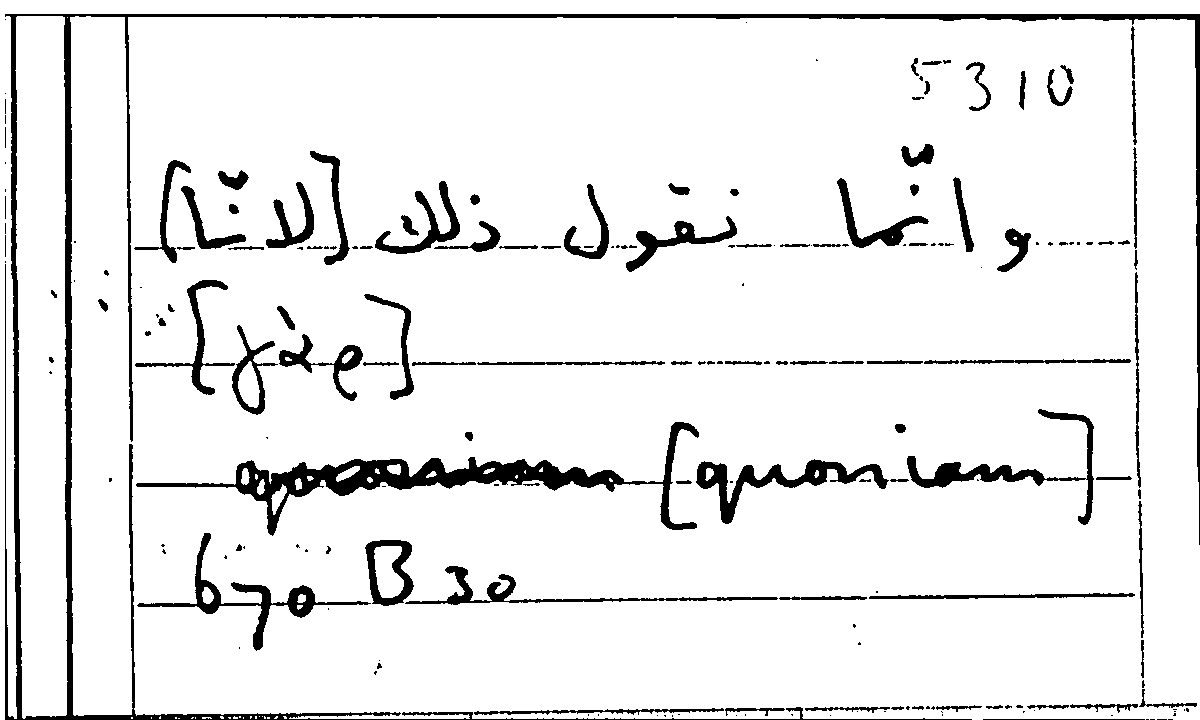 5310
وانّما نقول ذلك [لانّا]
[γὰρ]
[quoniam]
670 B 30